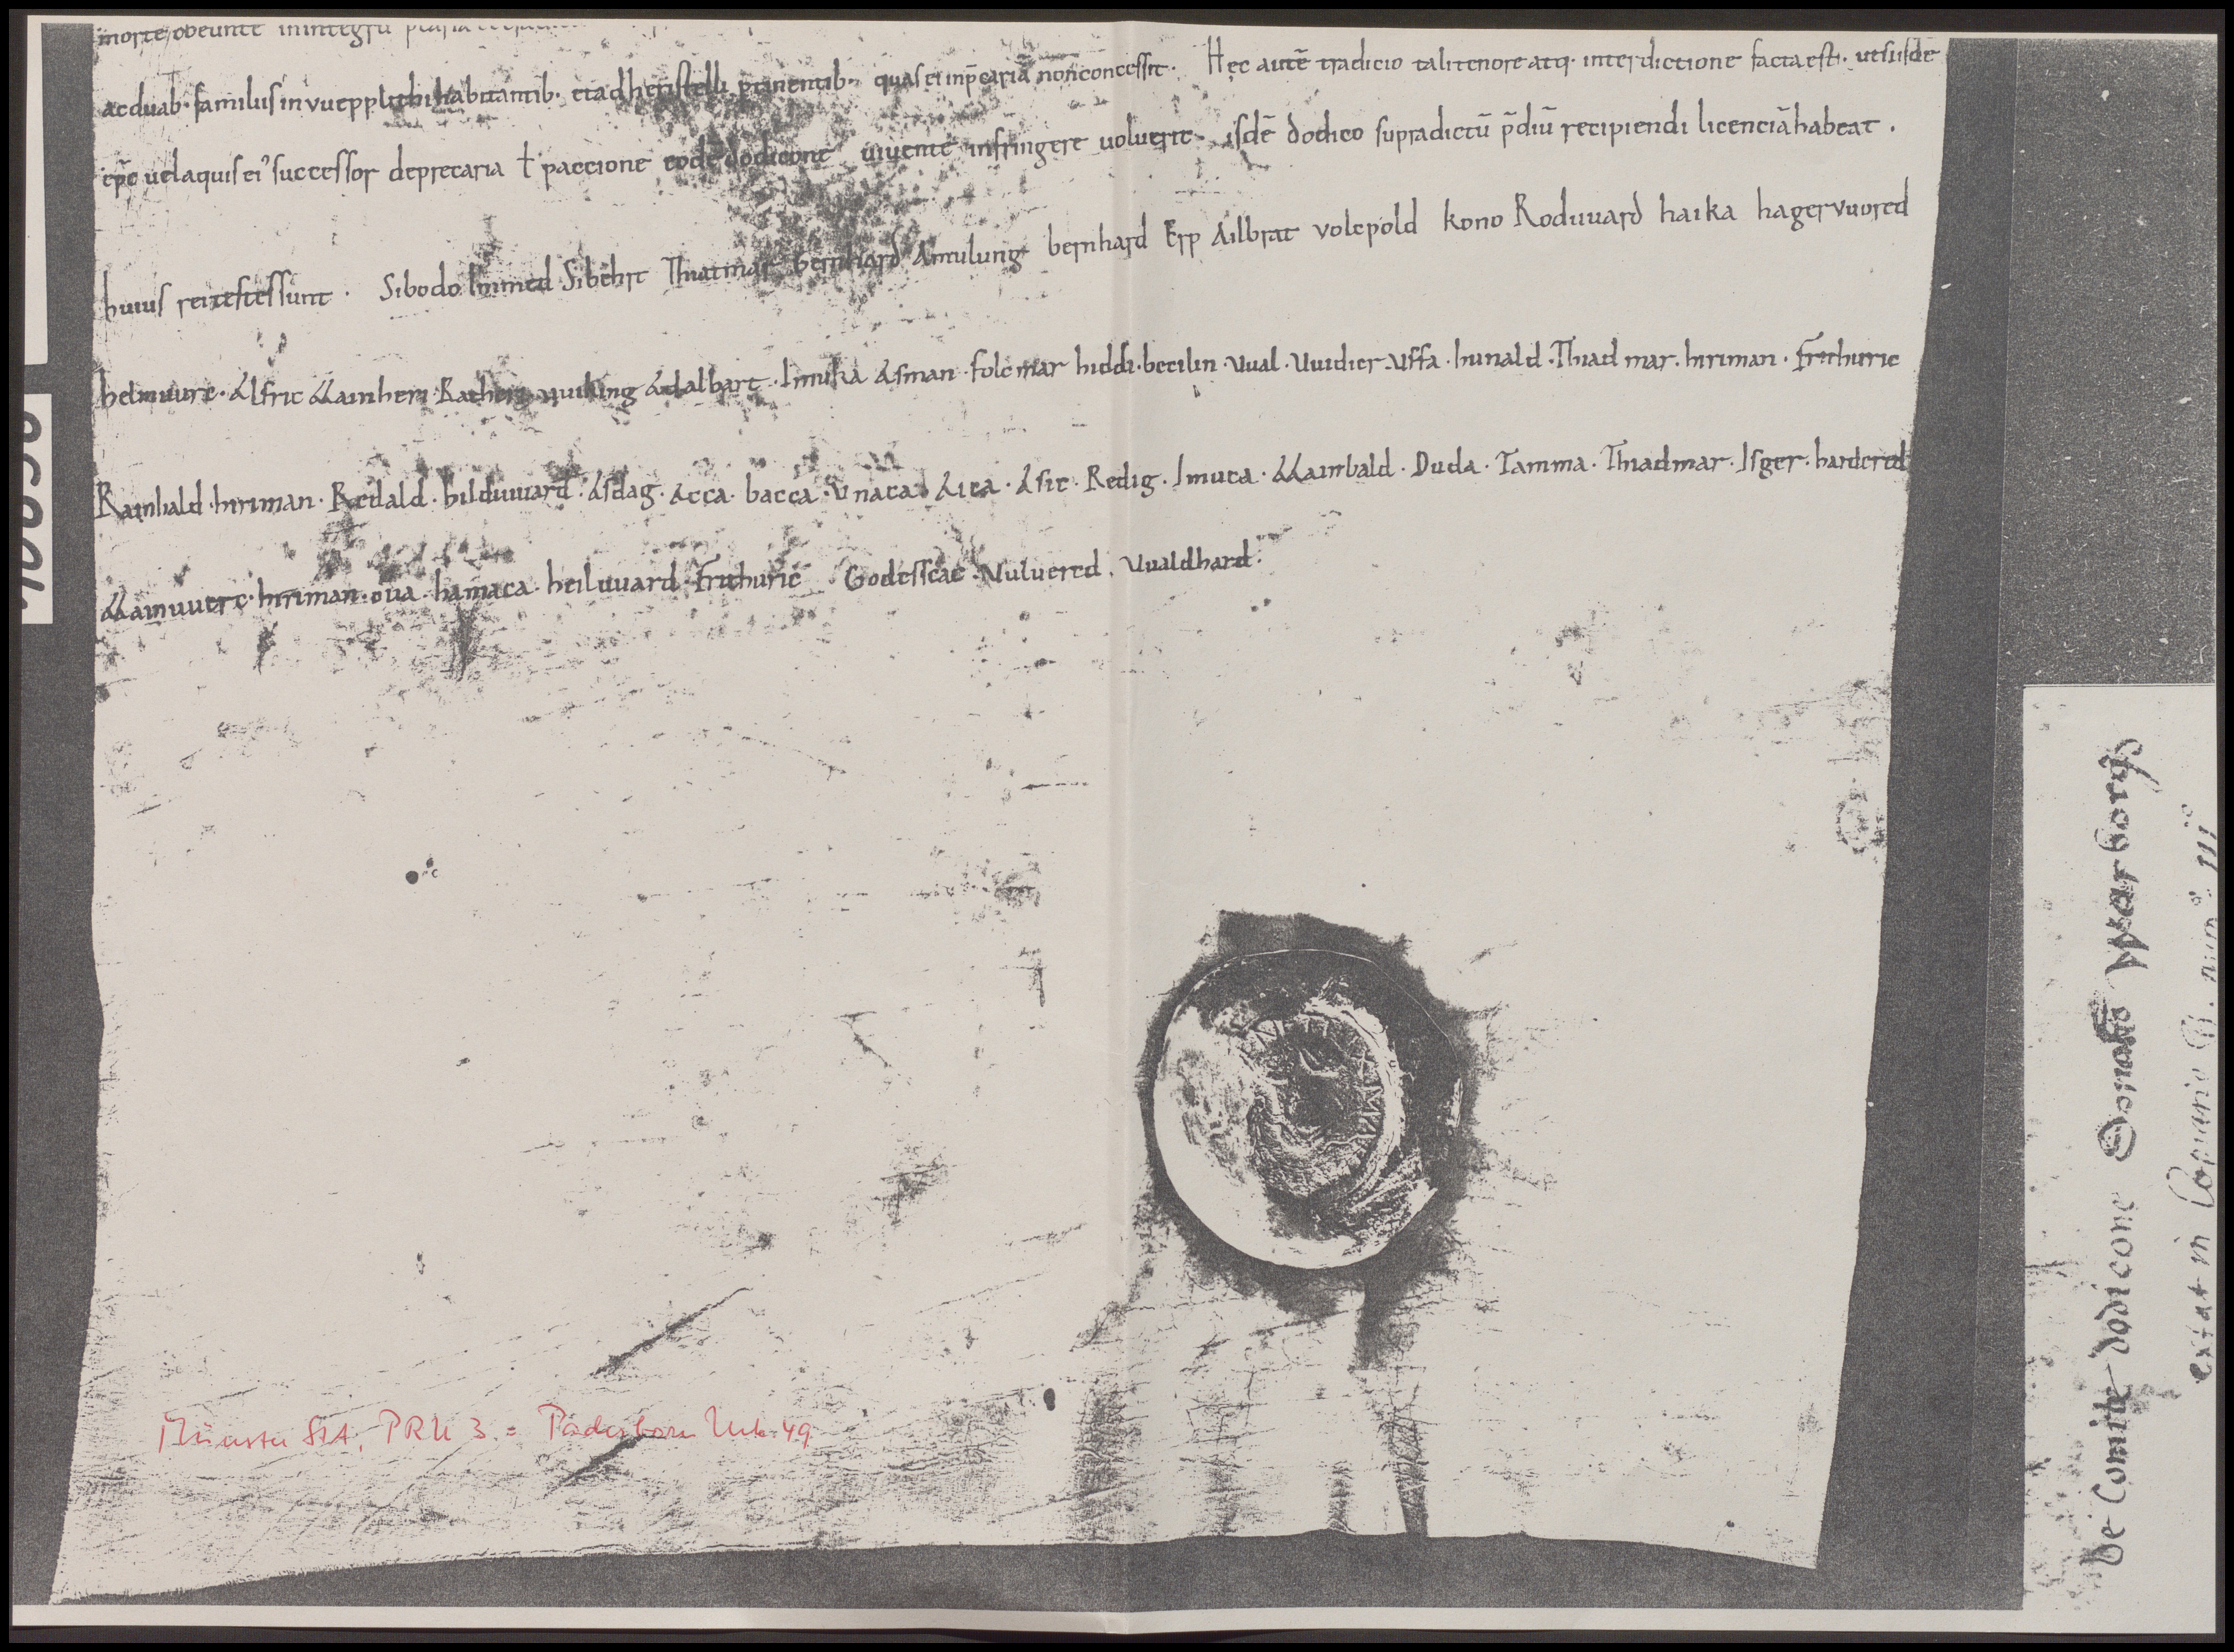 morte obeunte in integrũ
ac duab· familiis in vuepplithi habitantib· et ad heristelli ptinentib· quas ei in p̄cariã non concessit· Hęc autē tradicio tali tenore atq· interdictione facta est· ut si isdē
ep̄c uel aquis ei᾽ successor deprecaria ł paccione eodē dodicone uiuente infringere uoluerit isdē dodico supradictũ p̄diũ recipiendi licenciã habeat ·
huius rei testes sunt · Sibodo Immed Sibehrt Thiatmar bernhard Amulung bernhard Erp Ailbrat volcpold kono Roduuard haika hageruuored
helmuure· Alfric Mainheri· Rathere· uuiking Adalbart · Immika Asman · folcmar hiddi· becilin · Uual · Uuidier· Uffa · hunald · Thiadmar· hiriman · Frithuric
Rainbald · hiriman · Redald · hilduuard · Asdag · Acca · bacca · Unaca · Aica · Asic · Redig · Imuca · Mainbald · Duda · Tamma · Thiadmar · Isger · hardered
Mainuuerc· hiriman · oua · hamaca · heiluuard · Frithuric Godesscac · Vuluered · Uualdhard·
Münster StA, PRU 3 = Paderborn Urk 49
De Comite dodicone Donatio
extat in Copario